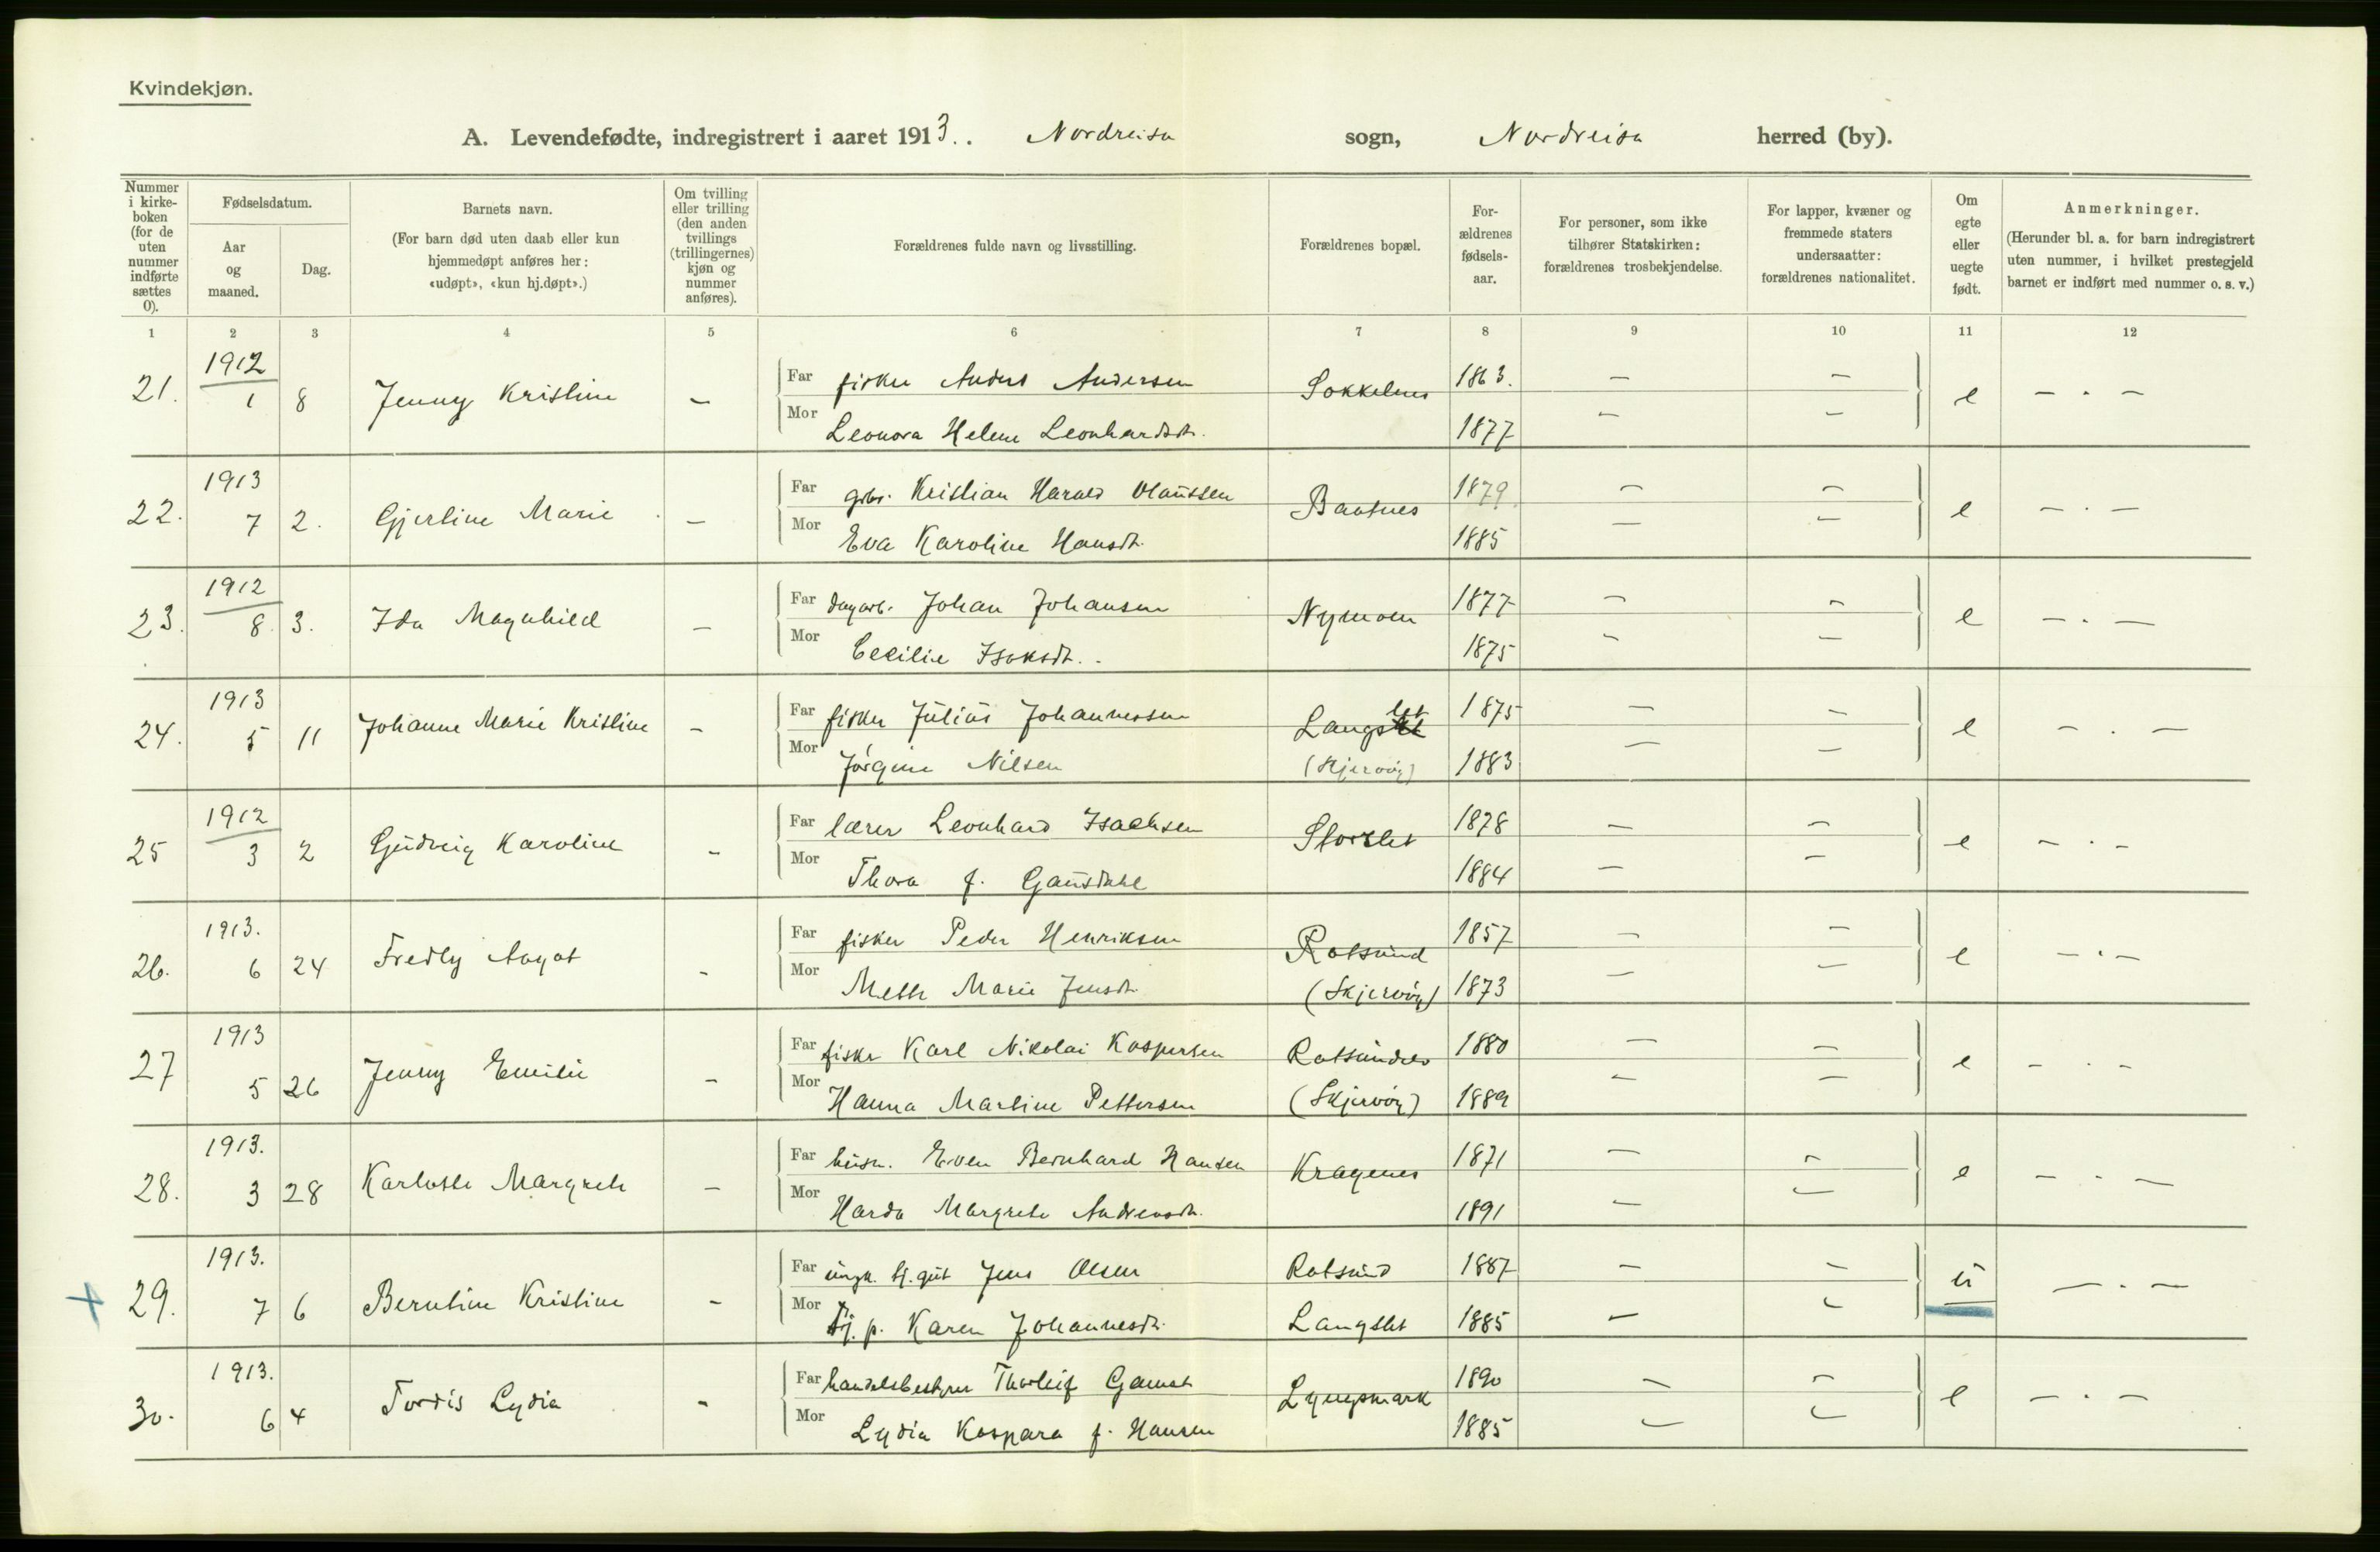 Kvindekjøn.
A. Levendefødte, indregistrert i aaret 1913. . Nordreisa sogn, Nordreisa herred (by).
Nummer i kirke-boken (for de uten nummer indførte sættes 0).
Fødselsdatum.
Aar og maaned.
Dag.
Barnets navn.
(For barn død uten daab eller kun hjemmedøpt anføres her: «udøpt», «kun hj.døpt».)
Om tvilling eller trilling (den anden tvillings (trillingernes) kjøn og nummer anføres).
Forældrenes fulde navn og livsstilling.
Forældrenes bopæl.
For-ældrenes fødsels-aar.
For personer, som ikke tilhører Statskirken: forældrenes trosbekjendelse.
For lapper, kvæner og fremmede staters undersaatter: forældrenes nationalitet.
Om egte eller uegte født.
Anmerkninger.
(Herunder bl. a. for barn indregistrert uten nummer, i hvilket prestegjeld barnet er indført med nummer o. s. v.)
1 2 3 4 5 6 7 8 9 10 11 12
1912
21. 1 8 Jenny Kristine – Far fisker Anders Andersen Sokkelnes 1863. – – e – . –
Mor Leonora Helene Leonhardsdt. 1877 – –
1913
22. 7 2. Gjertine Marie – Far gbr. Kristian Harald Olaussen Baatnes 1879. – – e – . –
Mor Eva Karoline Hansdt. 1885 – –
1912
23. 8. 3. Ida Magnhild – Far dagarb. Johan Johansen Nymoen 1877 – – e – . –
Mor Cecilie Isaksdt. . 1875 – –
1913
24. 5 11 Johanne Marie Kristine – Far fisker Julius Johannessen Langslet 1875 – – e – . –
Mor Jørgine Nilsen (Skjervøy) 1883 – –
1912
25 3 2 Gudveig Karoline – Far lærer Leonhard Isachsen Storslet 1878 – – e – . –
Mor Thora f. Gausdahl 1884 – –
1913.
26. 6 24 Fredly Aagot – Far fisker Peder Henriksen Rotsund 1857 – – e – . –
Mor Mette Marie Jensdt. (Skjervøy) 1873 – –
1913
27 5 26 Jenny Emilie – Far fisker Karl Nikolai Kaspersen Rotsundelv 1880 – – e – . –
Mor Hanna Martine Pettersen (Skjervøy) 1889 – –
1913.
28. 3 28 Karlotte Margrete – Far husm. Even Bernhard Hansen Kragenes 1871 – – e – . –
Mor Harda Margrete Andreasdt. 1891 – –
1913.
+ 29. 7 6 Berntine Kristine – Far ungk. tj.gut Jens Olsen Rotsund 1887 – – u – . –
Mor tj. p. Karen Johannesdt. Langslet 1885 – –
1913.
30. 6 4 Tordis Lydia – Far handelsbestyrer Thorleif Gamst Lyngsmark 1890 – – e – . –
Mor Lydia Kaspara f. Hansen 1885 – –